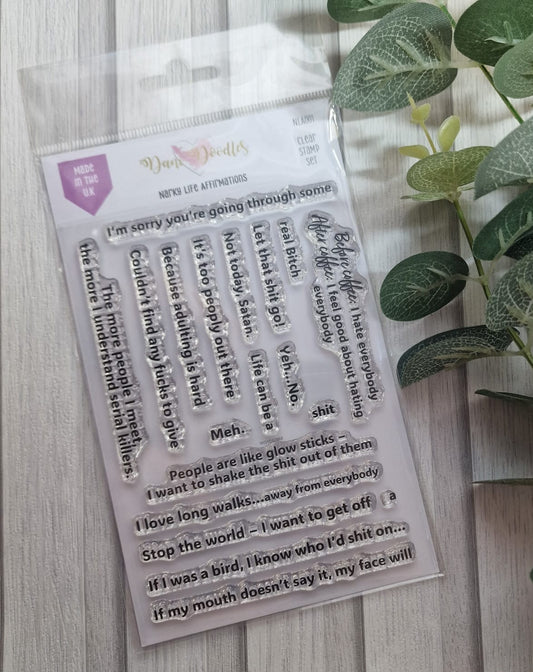 Made
in the
U.K
Dani Doodles
NLA001
Clear
Stamp
Set
Narky Life Affirmations
I'm sorry you're going through some
The more people I meet,
the more I understand serial killers.
Couldn't find any fucks to give
Because adulting is hard
It's too peoply out there
Not today, Satan.
Let that shit go!
real Bitch
Before coffee: I hate everybody
After coffee: I feel good about hating
everybody
Life can be a
Yeh...No.
shit
Meh.
People are like glow sticks –
I want to shake the shit out of them
I love long walks...away from everybody
a
Stop the world – I want to get off
If I was a bird, I know who I'd shit on...
If my mouth doesn't say it, my face will